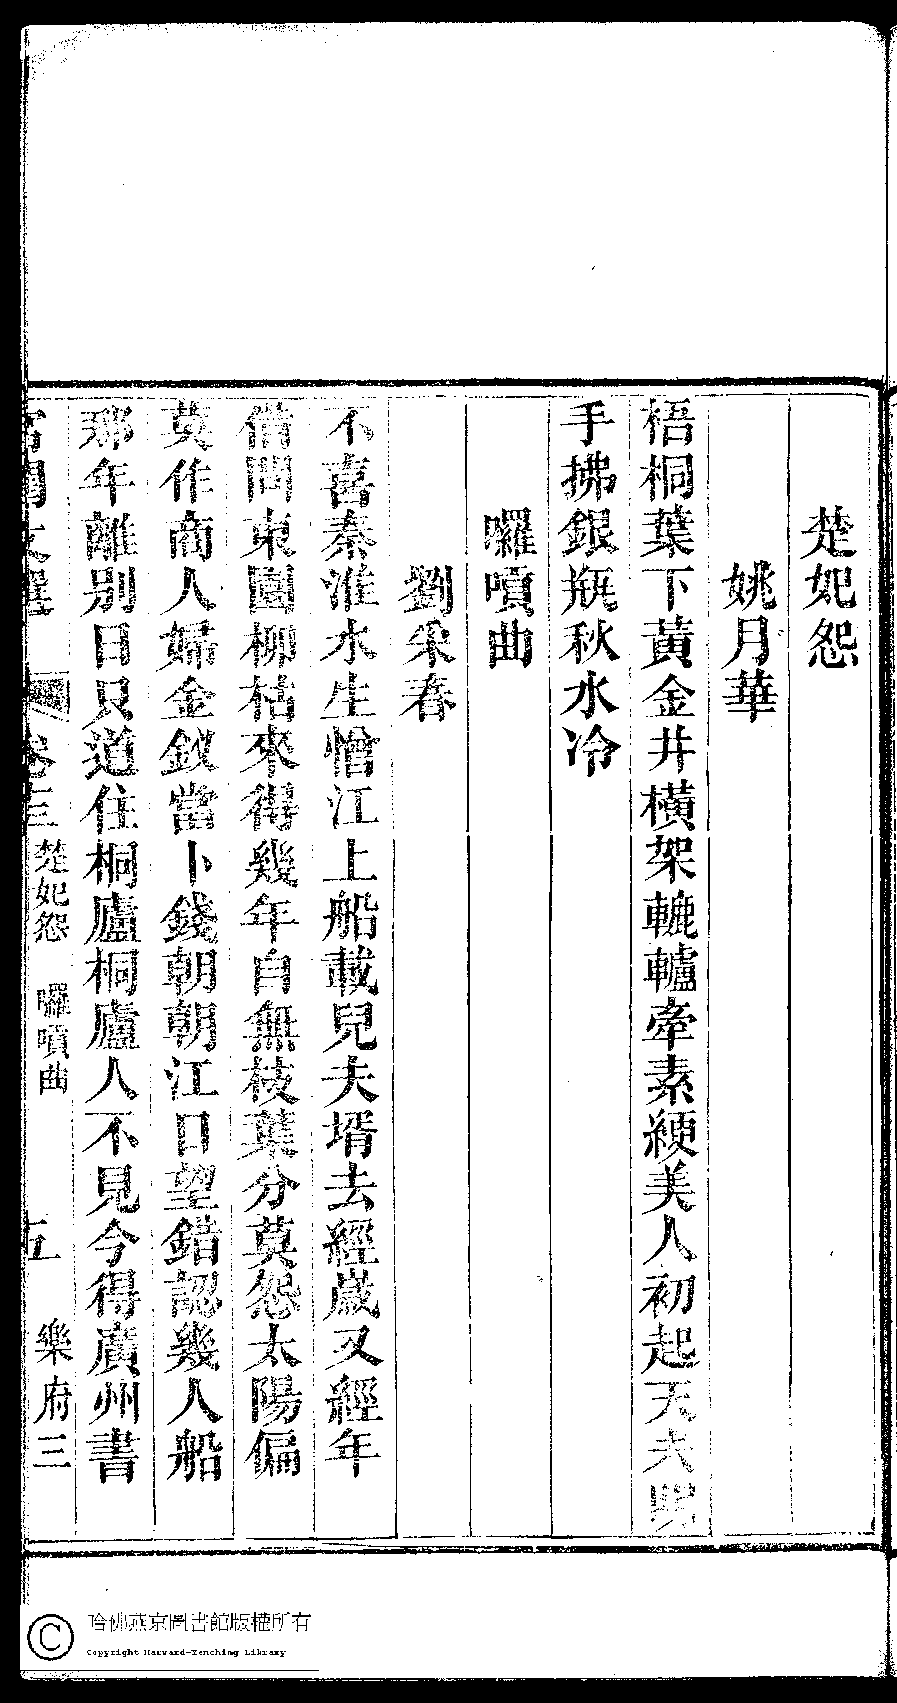 楚妃怨
姚月華
梧桐葉下黃金井橫架轆轤牽素綆美人初起天未明
手拂銀瓶秋水冷
囉嗊曲
劉采春
不喜秦淮水生憎江上船載兒夫壻去經歲又經年
借問東園柳枯來得幾年自無枝葉分莫怨太陽偏
莫作商人婦金釵當卜錢朝朝江口望錯認幾人船
那年離別日只道住桐廬桐廬人不見今得廣州書
宮閨文選 卷三 楚妃怨 囉嗊曲 五 樂府三
哈佛燕京圖書館版權所有
Copyright Harvard-Yenching Library